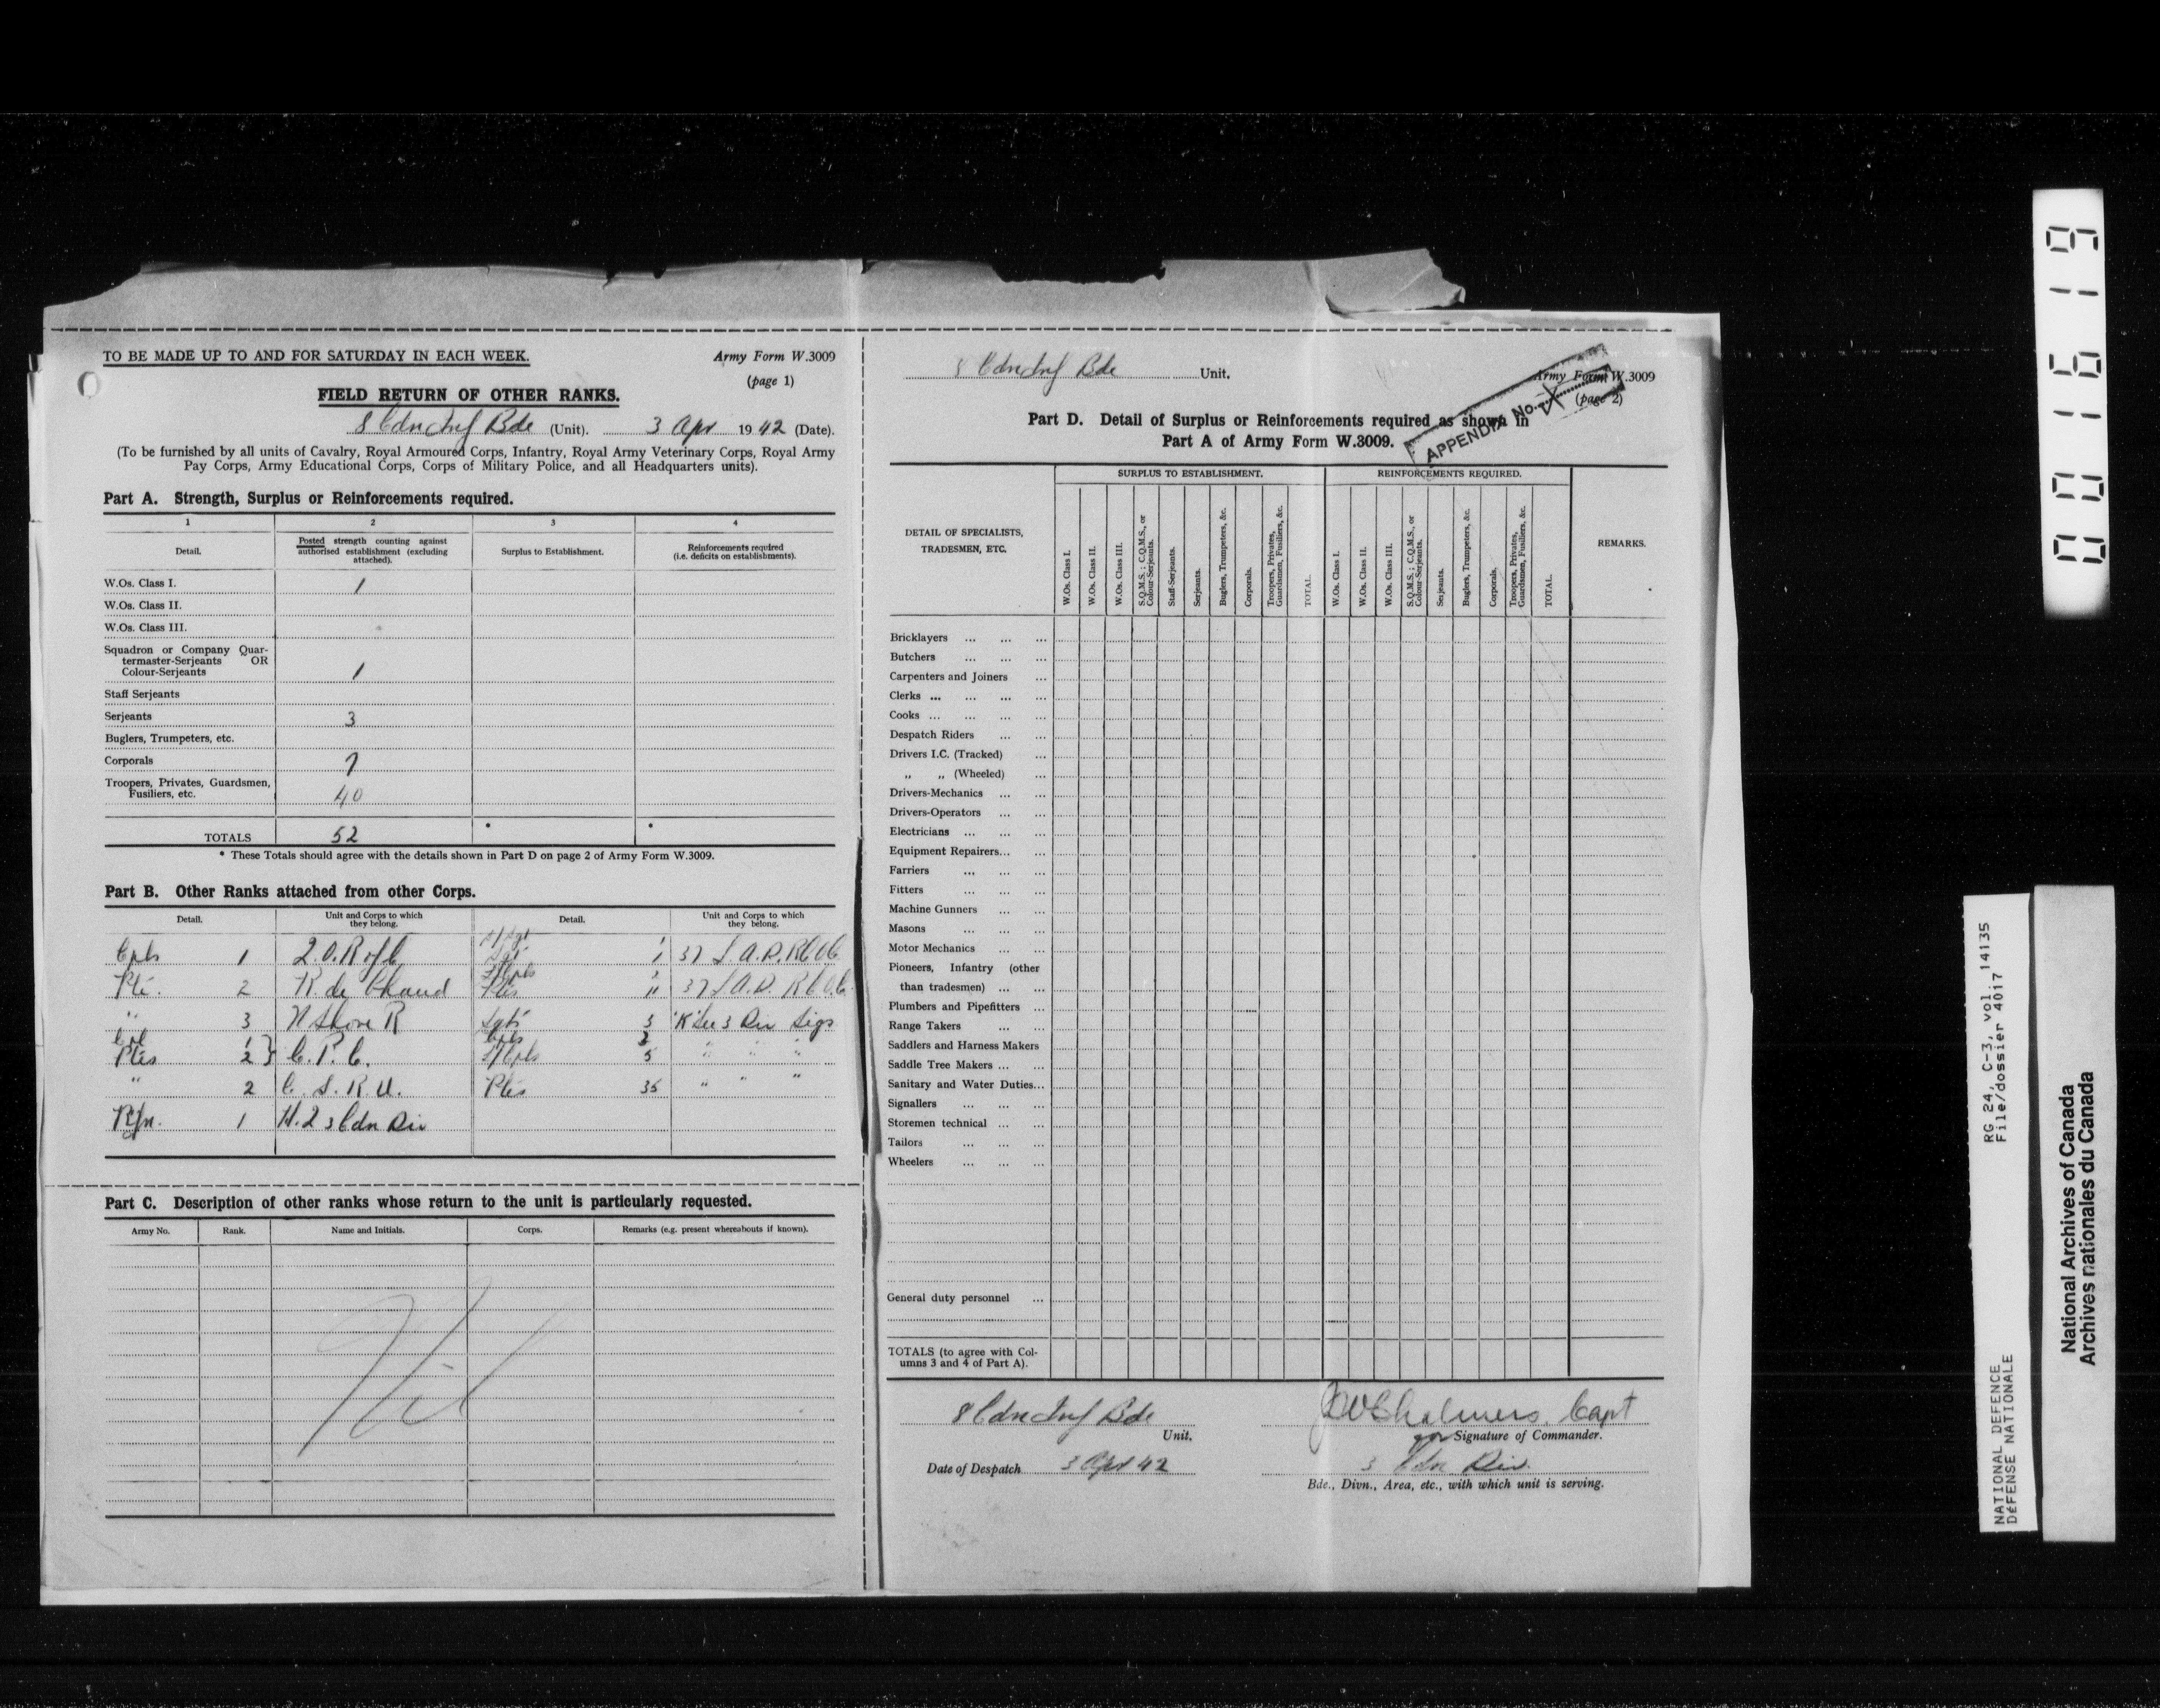 TO BE MADE UP TO AND FOR SATURDAY IN EACH WEEK.
Army Form W.3009
(page 1)
FIELD RETURN OF OTHER RANKS.
8 Cdn Inf Bde (Unit). 3 Apr 1942 (Date).
(To be furnished by all units of Cavalry, Royal Armoured Corps, Infantry, Royal Army Veterinary Corps, Royal Army
Pay Corps, Army Educational Corps, Corps of Military Police, and all Headquarters units).
Part A. Strength, Surplus or Reinforcements required.
1 2 3 4
Detail.
Posted strength counting against
authorised establishment (excluding
attached).
Surplus to Establishment.
Reinforcements required
(i.e. deficits on establishments).
W.Os. Class I. 1
W.Os. Class II.
W.Os. Class III.
Squadron or Company Quar-
termaster-Serjeants OR
Colour-Serjeants 1
Staff Serjeants
Serjeants 3
Buglers, Trumpeters, etc.
Corporals 7
Troopers, Privates, Guardsmen,
Fusiliers, etc. 40
TOTALS 52 * *
* These Totals should agree with the details shown in Part D on page 2 of Army Form W.3009.
Part B. Other Ranks attached from other Corps.
Detail.
Unit and Corps to which
they belong.
Detail.
Unit and Corps to which
they belong.
Cpls 1 Q.O.R of C 1 37 L.A.D. RCOC
Pte. 2 R de Chaud Ptes 11 37 L.A.D. RCOC
" 3 N Shore R Sgts 3 'K' Sec 3 Div Sigs
Cpl 1
Ptes 2 } C.P.C. L/Cpls 5 " " "
" 2 C.S.R.U. Ptes 35 " " "
Rfn. 1 H.Q 3 Cdn Div
Part C. Description of other ranks whose return to the unit is particularly requested.
Army No. Rank. Name and Initials. Corps. Remarks (e.g. present whereabouts if known).
Nil
8 Cdn Inf Bde Unit.
Army Form W.3009
(page 2)
APPENDIX No. X
Part D. Detail of Surplus or Reinforcements required as shown in
Part A of Army Form W.3009.
DETAIL OF SPECIALISTS,
TRADESMEN, ETC.
SURPLUS TO ESTABLISHMENT.
W.Os. Class I.
W.Os. Class II.
W.Os. Class III.
S.Q.M.S.; C.Q.M.S., or
Colour-Serjeants.
Staff-Serjeants.
Serjeants.
Buglers, Trumpeters, &c.
Corporals.
Troopers, Privates,
Guardsmen, Fusiliers, &c.
TOTAL
REINFORCEMENTS REQUIRED.
W.Os. Class I.
W.Os. Class II.
W.Os. Class III.
S.Q.M.S.; C.Q.M.S., or
Colour-Serjeants.
Serjeants.
Buglers, Trumpeters, &c.
Corporals.
Troopers, Privates,
Guardsmen, Fusiliers, &c.
TOTAL.
REMARKS.
Bricklayers ... ... ...
Butchers ... ... ...
Carpenters and Joiners ...
Clerks ... ... ... ...
Cooks ... ... ... ...
Despatch Riders ... ...
Drivers I.C. (Tracked) ...
" " (Wheeled) ...
Drivers-Mechanics ... ...
Drivers-Operators ... ...
Electricians ... ... ...
Equipment Repairers... ...
Farriers ... ... ...
Fitters ... ... ...
Machine Gunners ... ...
Masons ... ... ...
Motor Mechanics ... ...
Pioneers, Infantry (other
than tradesmen) ... ...
Plumbers and Pipefitters ...
Range Takers ... ...
Saddlers and Harness Makers
Saddle Tree Makers ... ...
Sanitary and Water Duties...
Signallers ... ... ...
Storemen technical ... ...
Tailors ... ... ...
Wheelers ... ... ...
General duty personnel ...
TOTALS (to agree with Col-
umns 3 and 4 of Part A).
8 Cdn Inf Bde
Unit.
JW Chalmers. Capt
for Signature of Commander.
Date of Despatch 3 Apr 42
3 Cdn Div.
Bde., Divn., Area, etc., with which unit is serving.
001619
RG 24, C-3, vol. 14135
File/dossier 4017
NATIONAL DEFENCE
DÉFENSE NATIONALE
National Archives of Canada
Archives nationales du Canada